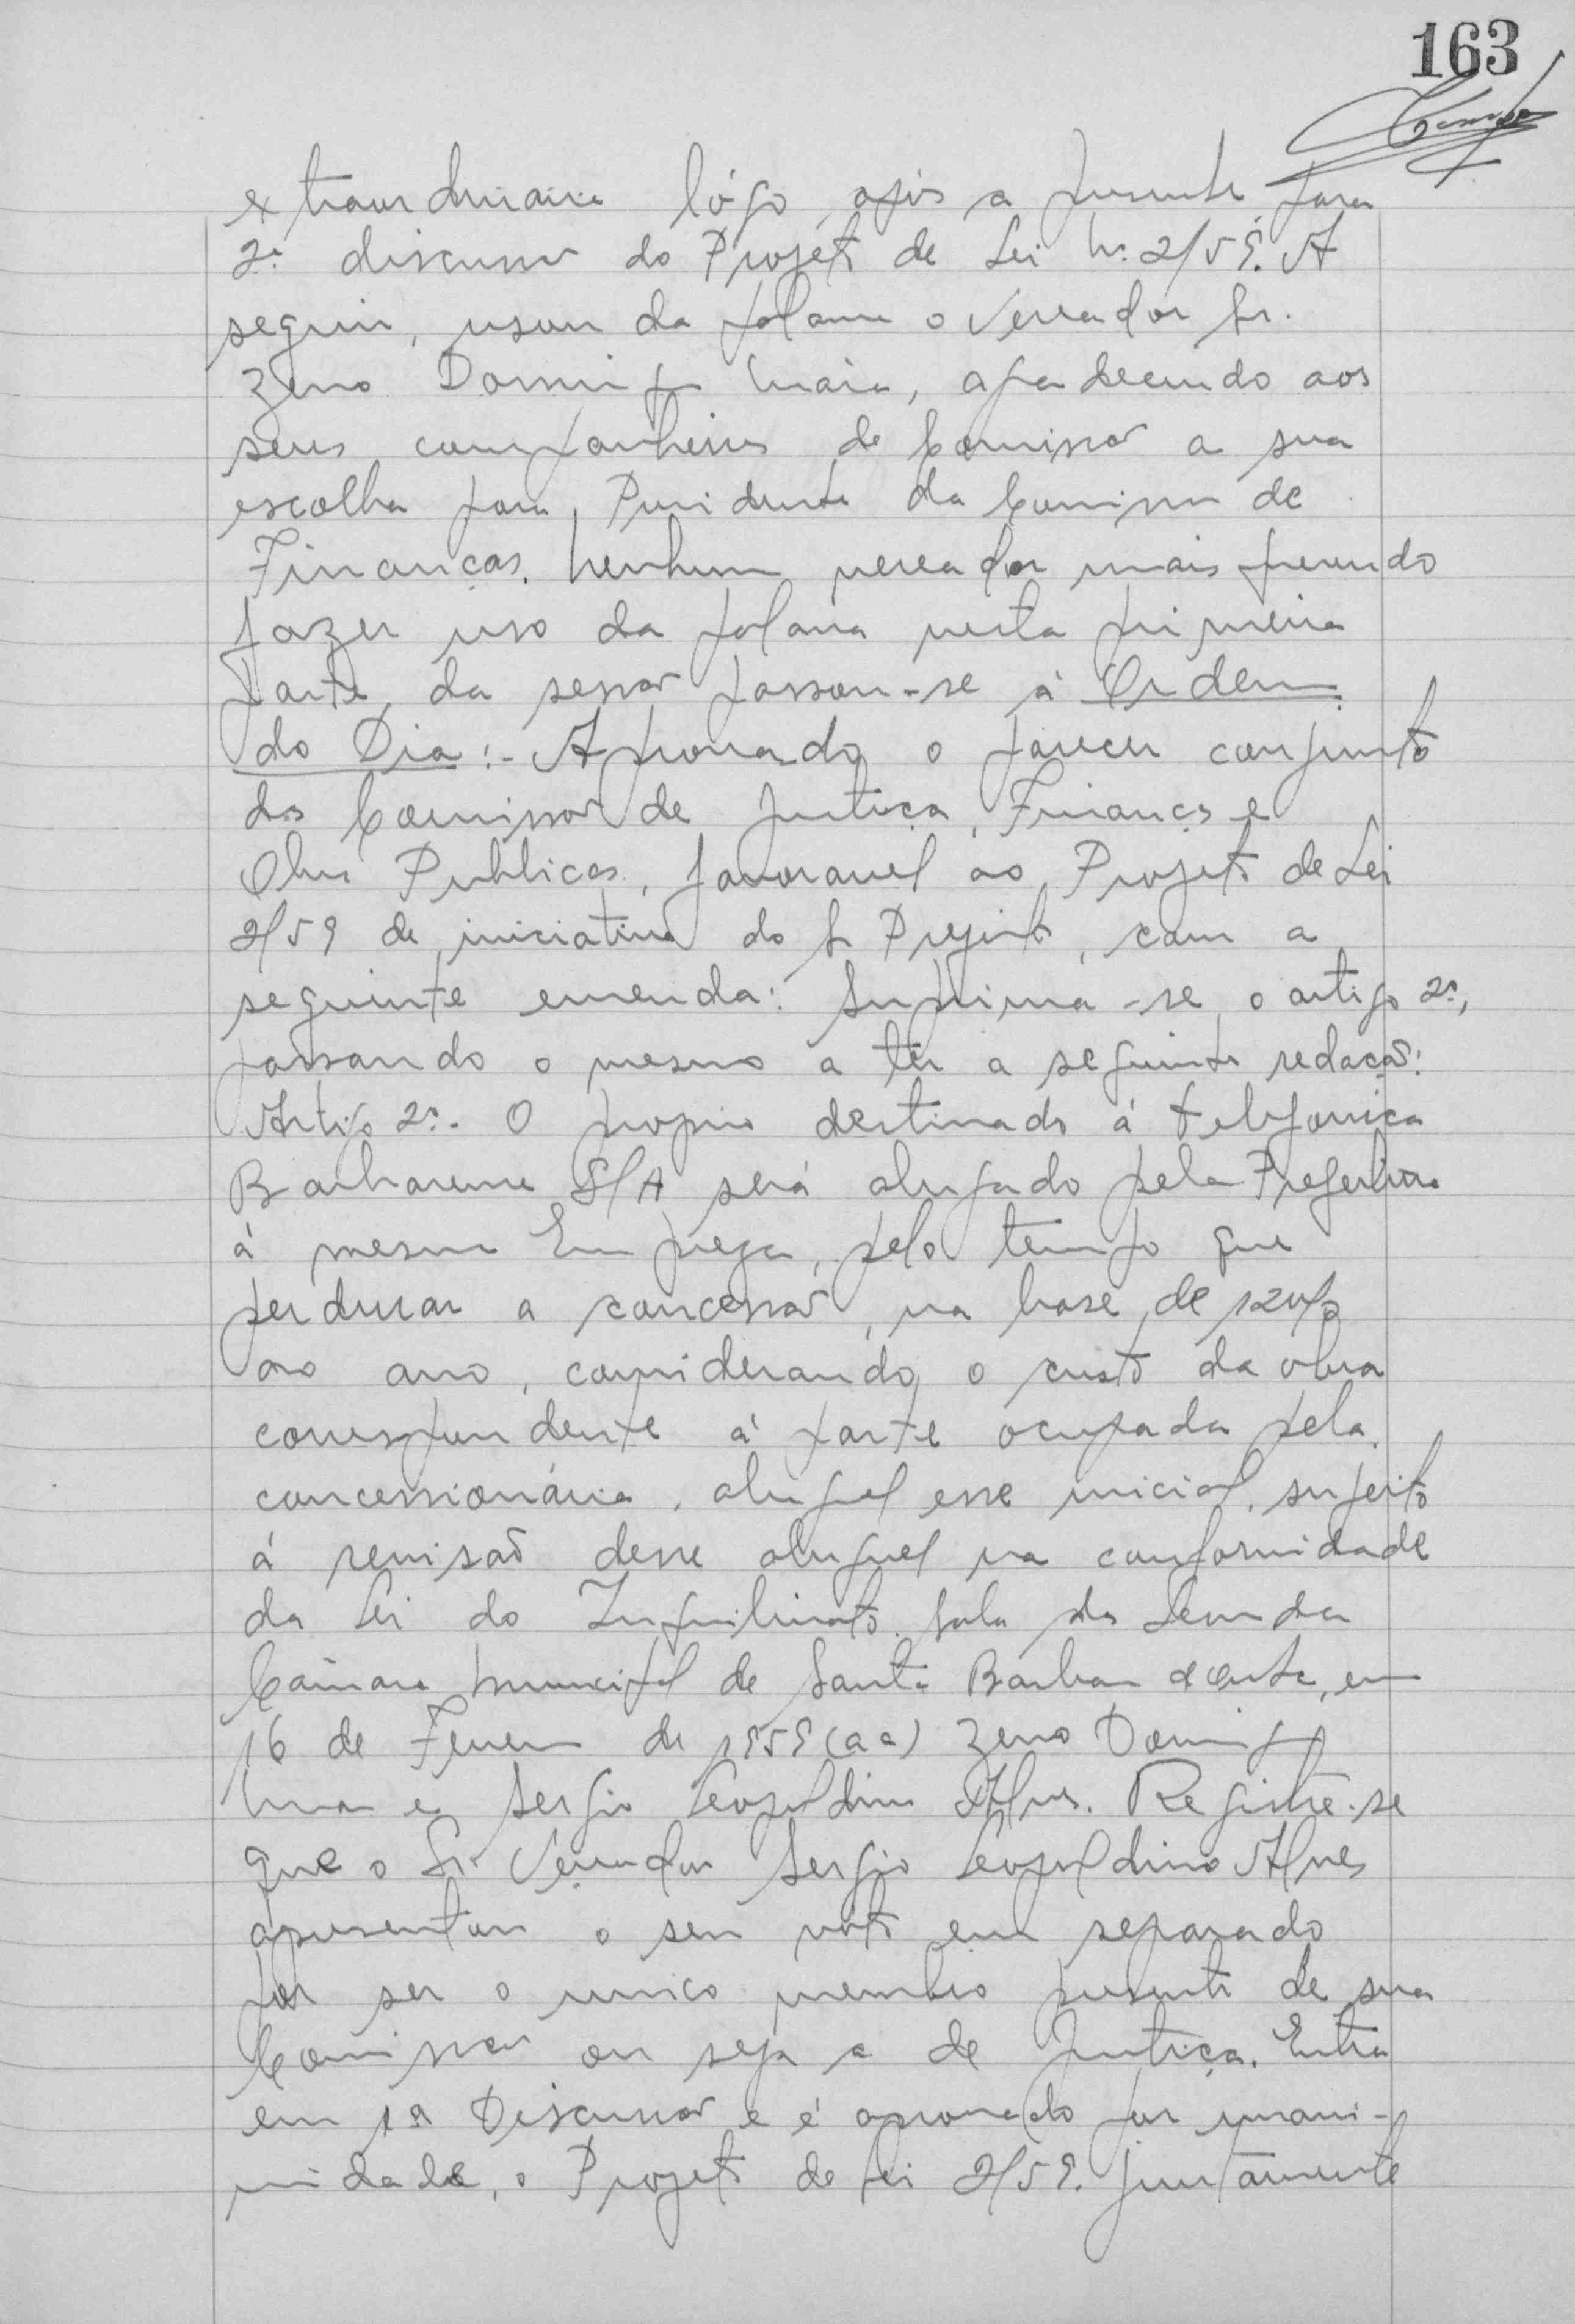 163
extraordinaria lógo após a presente para
2ª discussão do Projéto de Lei nº 2/59. A
seguir, usou da palavra o Vereador Sr.
Zeno Domingos Maia, agradecendo aos
seus companheiros de Comissão a sua
escolha para Presidente da Comissão de
Finanças. Nenhum vereador mais querendo
fazer uso da palavra nesta primeira
parte da sessão passou-se à Ordem
do Dia:- Aprovado o parecer conjunto
das Comissões de Justiça, Finanças e
Obras Publicas, favoravel ao Projeto de Lei
2/59 de iniciativa do Sr Prefeito, com a
seguinte emenda: Suprima-se o artigo 2º,
passando o mesmo a ter a seguinte redação:
Artigo 2º. O proprio destinado á telefonica
Barbarense S/A será alugado pela Prefeitura
á mesma Empreza, pelo tempo que
perdurar a concessão, na base de 12%
ao ano, considerando o custo da obra
correspondente á parte ocupada pela
concessionária, aluguel esse inicial, sujeito
á revisão desse aluguel na conformidade
da Lei do Inquilinato. Sala das Sessões da
Câmara Municipal de Santa Barbara d'Oeste, em
16 de Fevereiro de 1959 (aa) Zeno Domingos
Maia e Sergio Leopoldino Alves. Registre-se
que o Sr. Vereador Sergio Leopoldino Alves
apresentou o seu voto em separado
por ser o unico membro presente de sua
Comissão ou seja a de Justiça. Entra
em 1ª Discussão e é aprovado por unani-
midade, o Projeto de Lei 2/59. juntamente